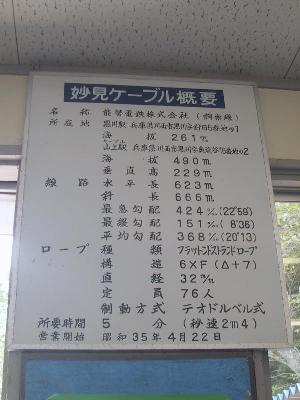 妙見ケーブル概要
名称 能勢電鉄株式会社(鋼索線)
所在地 黒川駅 兵庫県川西市黒川字
海抜 261m
山上駅 兵庫県川西市黒川字
海抜 490m
垂直高 229m
線路 水平長 623m
斜長 666m
最急勾配 424 (22°59')
最緩勾配 151 (8°36')
平均勾配 368 (20°13')
ロープ 種類 フラットンドストランドロープ
構造 6×F(△+7)
直径 32
定員 76人
制動方式 テオドルベル式
所要時間 5分 (秒速2m4)
営業開始 昭和35年4月22日